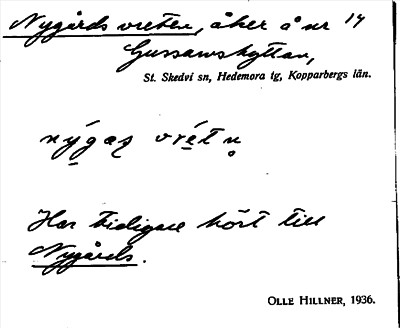 Nygårds vreten, åker å nr 14
Gussarvshyttan,
St. Skedvi sn, Hedemora tg, Kopparbergs län.
nýgaʂ vrétn̥
Har tidigare hört till
Nygårds.
OLLE HILLNER, 1936.